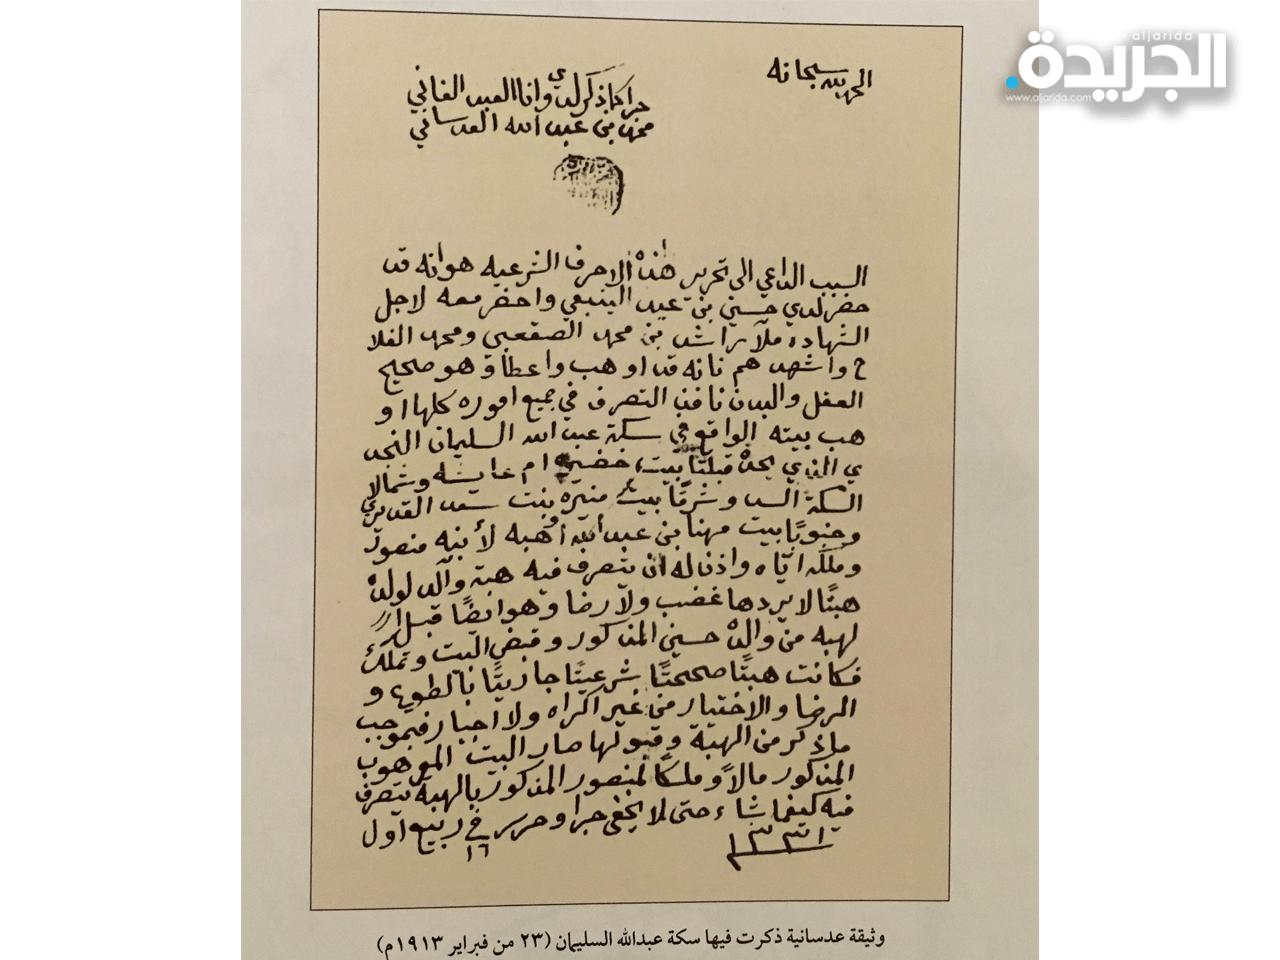 الجريدة
aljarida
www.aljarida.com
الحمد لله سبحانه
جرا كما ذكر لدي وانا العبد الفاني
محمد بن عبد الله العدساني
السبب الداعي الى تحرير هذه الاحرف الشرعيه هو انه قد
حضر لدي حسين بن عيد الينبعي واحضر معه لاجل
الشهاده ملا راشد بن محمد الصقعبي ومحمد الفلا
ح واشهدهم بانه قد اوهب واعطا وهو صحيح
العقل والبدن نافذ التصرف في جميع اموره كلها او
هب بيته الواقع في سكة عبد الله السليمان النجد
ي الذي يحده قبلتًا بيت خضير ام عايشه وشمالا
السكة السد وشرقًا بيت منيره بنت سعد القديري
وجنوبًا بيت مهنا بن عبد الله أوهبه لأبنه منصور
وملكه اياه واذنا له ان يتصرف فيه هبة والد لولده
هبتًا لا يردها غضب ولا رضا وهو ايضًا قبل
لهبه من والده حسين المذكور وقبض البيت وتملك
فكانت هبتًا صحيحتًا شرعيتًا جازيتًا بالطوع و
الرضا والاختيار من غير اكراه ولا اجبار فبموجب
ما ذكر من الهبة وقبولها صار البيت الموهوب
المذكور مالاً وملكًا لمنصور المذكور بالهبة يتصرف
فيه كيفما شاء حتى لا يخفى جرا وحرر في ربيع اول
١٦
١٣٣١
وثيقة عدسانية ذكرت فيها سكة عبدالله السليمان (٢٣ من فبراير ١٩١٣م)